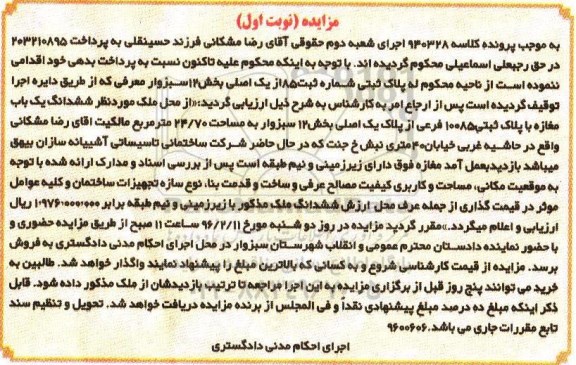 مزایده (نوبت اول)
به موجب پرونده کلاسه ۹۴۰۳۲۸ اجرای شعبه دوم حقوقی آقای رضا مشکانی فرزند حسینقلی به پرداخت ۲۰۳۲۱۰۸۹۵
در حق رجبعلی اسماعیلی محکوم گردیده اند. با توجه به اینکه محکوم علیه تاکنون نسبت به پرداخت بدهی خود اقدامی
ننموده است از ناحیه محکوم له پلاک ثبتی شماره ثبت۸۵از یک اصلی بخش۱۲سبزوار معرفی که از طریق دایره اجرا
توقیف گردیده است پس از ارجاع امر به کارشناس به شرح ذیل ارزیابی گردید:«از محل ملک موردنظر ششدانگ یک باب
مغازه با پلاک ثبتی۱۰۰۸۵ فرعی از پلاک یک اصلی بخش۱۲ سبزوار به مساحت ۲۴/۷۰ مترمربع مالکیت اقای رضا مشکانی
واقع در حاشیه غربی خیابان۴۰متری نبش خ جنت که در حال حاضر شرکت ساختمانی تاسیساتی آشییانه سازان بیهق
میباشد بازدیدبعمل آمد مغازه فوق دارای زیرزمینی و نیم طبقه است پس از بررسی اسناد و مدارک ارائه شده با توجه
به موقعیت مکانی، مساحت و کاربری کیفیت مصالح عرفی و ساخت و قدمت بنا، نوع سازه تجهیزات ساختمان و کلیه عوامل
موثر در قیمت گذاری از جمله عرف محل ارزش ششدانگ ملک مذکور با زیرزمینی و نیم طبقه برابر ۱۰۹۷۶۰۰۰۰۰۰ ریال
ارزیابی و اعلام میگردد.»مقرر گردید مزایده در روز دو شنبه مورخ ۹۶/۲/۱۱ ساعت ۱۱ صبح از طریق مزایده حضوری و
با حضور نماینده دادستان محترم عمومی و انقلاب شهرستان سبزوار در محل اجرای احکام مدنی دادگستری به فروش
برسد. مزایده از قیمت کارشناسی شروع و به کسانی که بالاترین مبلغ را پیشنهاد نمایند واگذار خواهد شد. طالبین به
خرید می توانند پنج روز قبل از برگزاری مزایده به این اجرا مراجعه تا ترتیب بازدیدشان از ملک مذکور داده شود. قابل
ذکر اینکه مبلغ ده درصد مبلغ پیشنهادی نقدا و فی المجلس از برنده مزایده دریافت خواهد شد. تحویل و تنظیم سند
تابع مقررات جاری می باشد.۹۶۰۰۶۰۶
اجرای احکام مدنی دادگستری